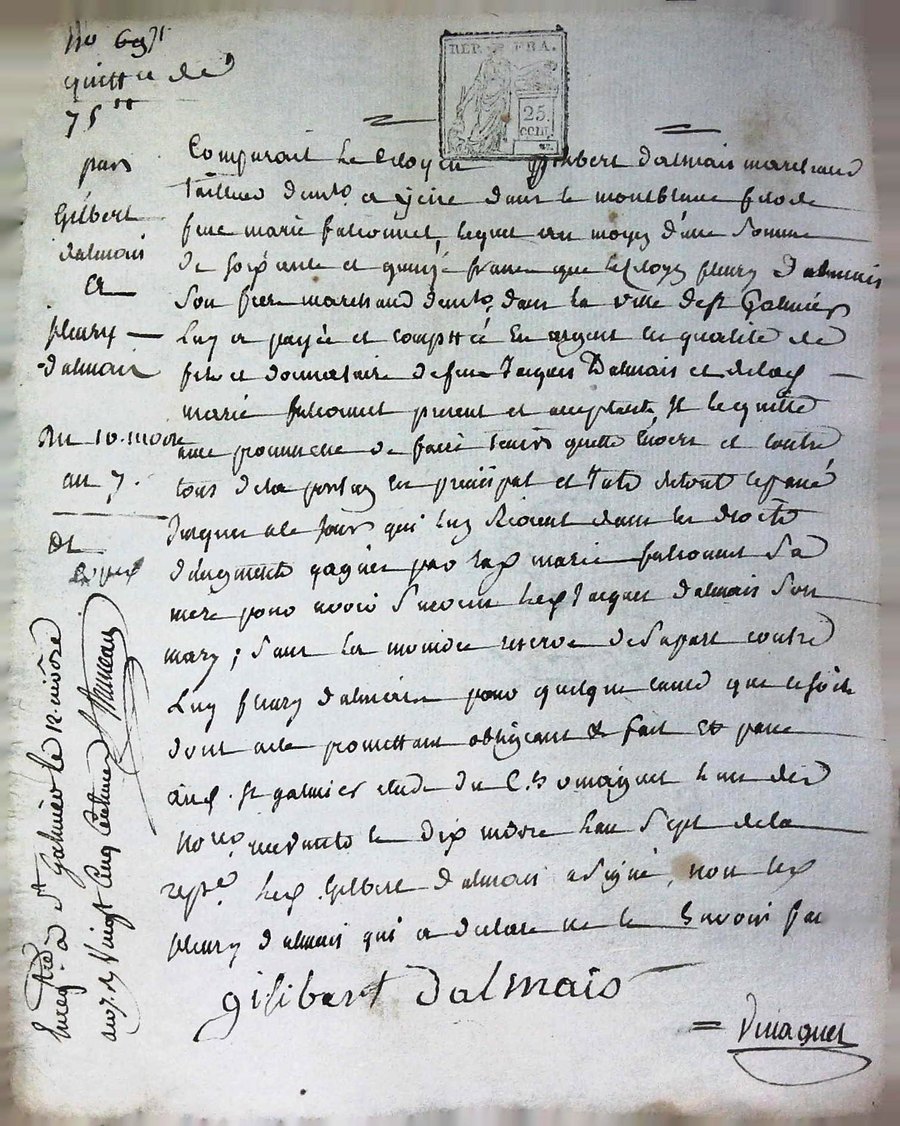 No 697
quittce de
75tt
par
Gilbert
dalmais
Et
fleury
dalmais
Du 10. nivose
an 7.
REP. FRA.
25.
CENT.
Comparait le Citoyen Gilbert dalmais marchand
tailleur dans le montblanc fils de
feue marie falconnet, lequel au moyen d'une Somme
de soixante et quinze francs que le Citoyen fleury Dalmais
Son frere marchand dans la ville de st Galmier
Luy a payée et comptée En argent En qualité de
fils et donnataire de feu Jacques Dalmais et de lad
marie falconnet present et acceptant, Il le quitte
avec promesse de faire tenir quitte Envers et contre
tous de la portion En principal et de tout le passé
Jusques a ce Jour qui luy Revient dans les droits
d'augment gagnés par lad marie falconnet Sa
mere pour avoir Survecu led Jacques dalmais Son
mary; Sans la moindre reserve de Sa part contre
Luy fleury dalmais pour quelque cause que ce soit
dont acte promettant obligeant & fait Et passé
aud. st galmier etude du C. L'un des
Nores le dix nivose L'an Sept de la
repe. led Gilbert Dalmais a signé, non led
fleury dalmais qui a declaré ne le Savoir fai
gilibert dalmais
Enregistré à St Galmier le 12 nivôse
an 7. Vingt Cinq Centimes